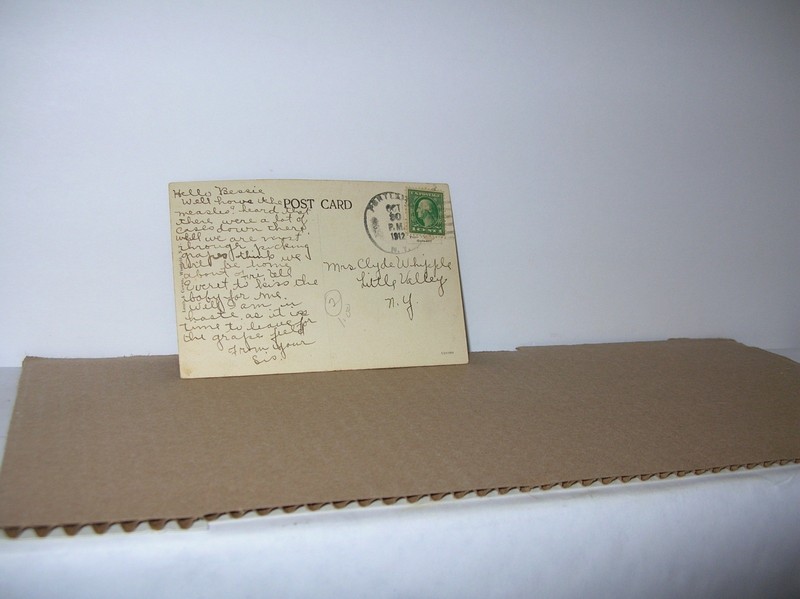 Hello Bessie
Well hows the
measles. heard that
there were a lot of
cases down there
well we are most
through picking
grapes think we
will be home
about Fri tell
Everet to kiss the
baby for me.
Well I am in
haste as it is
time to leave for
the grape field
From your
Sis.
POST CARD
OCT
30
P.M.
1912
N.Y.
Mrs Clyde Whipple
Little Valley
N.Y
2
1.00